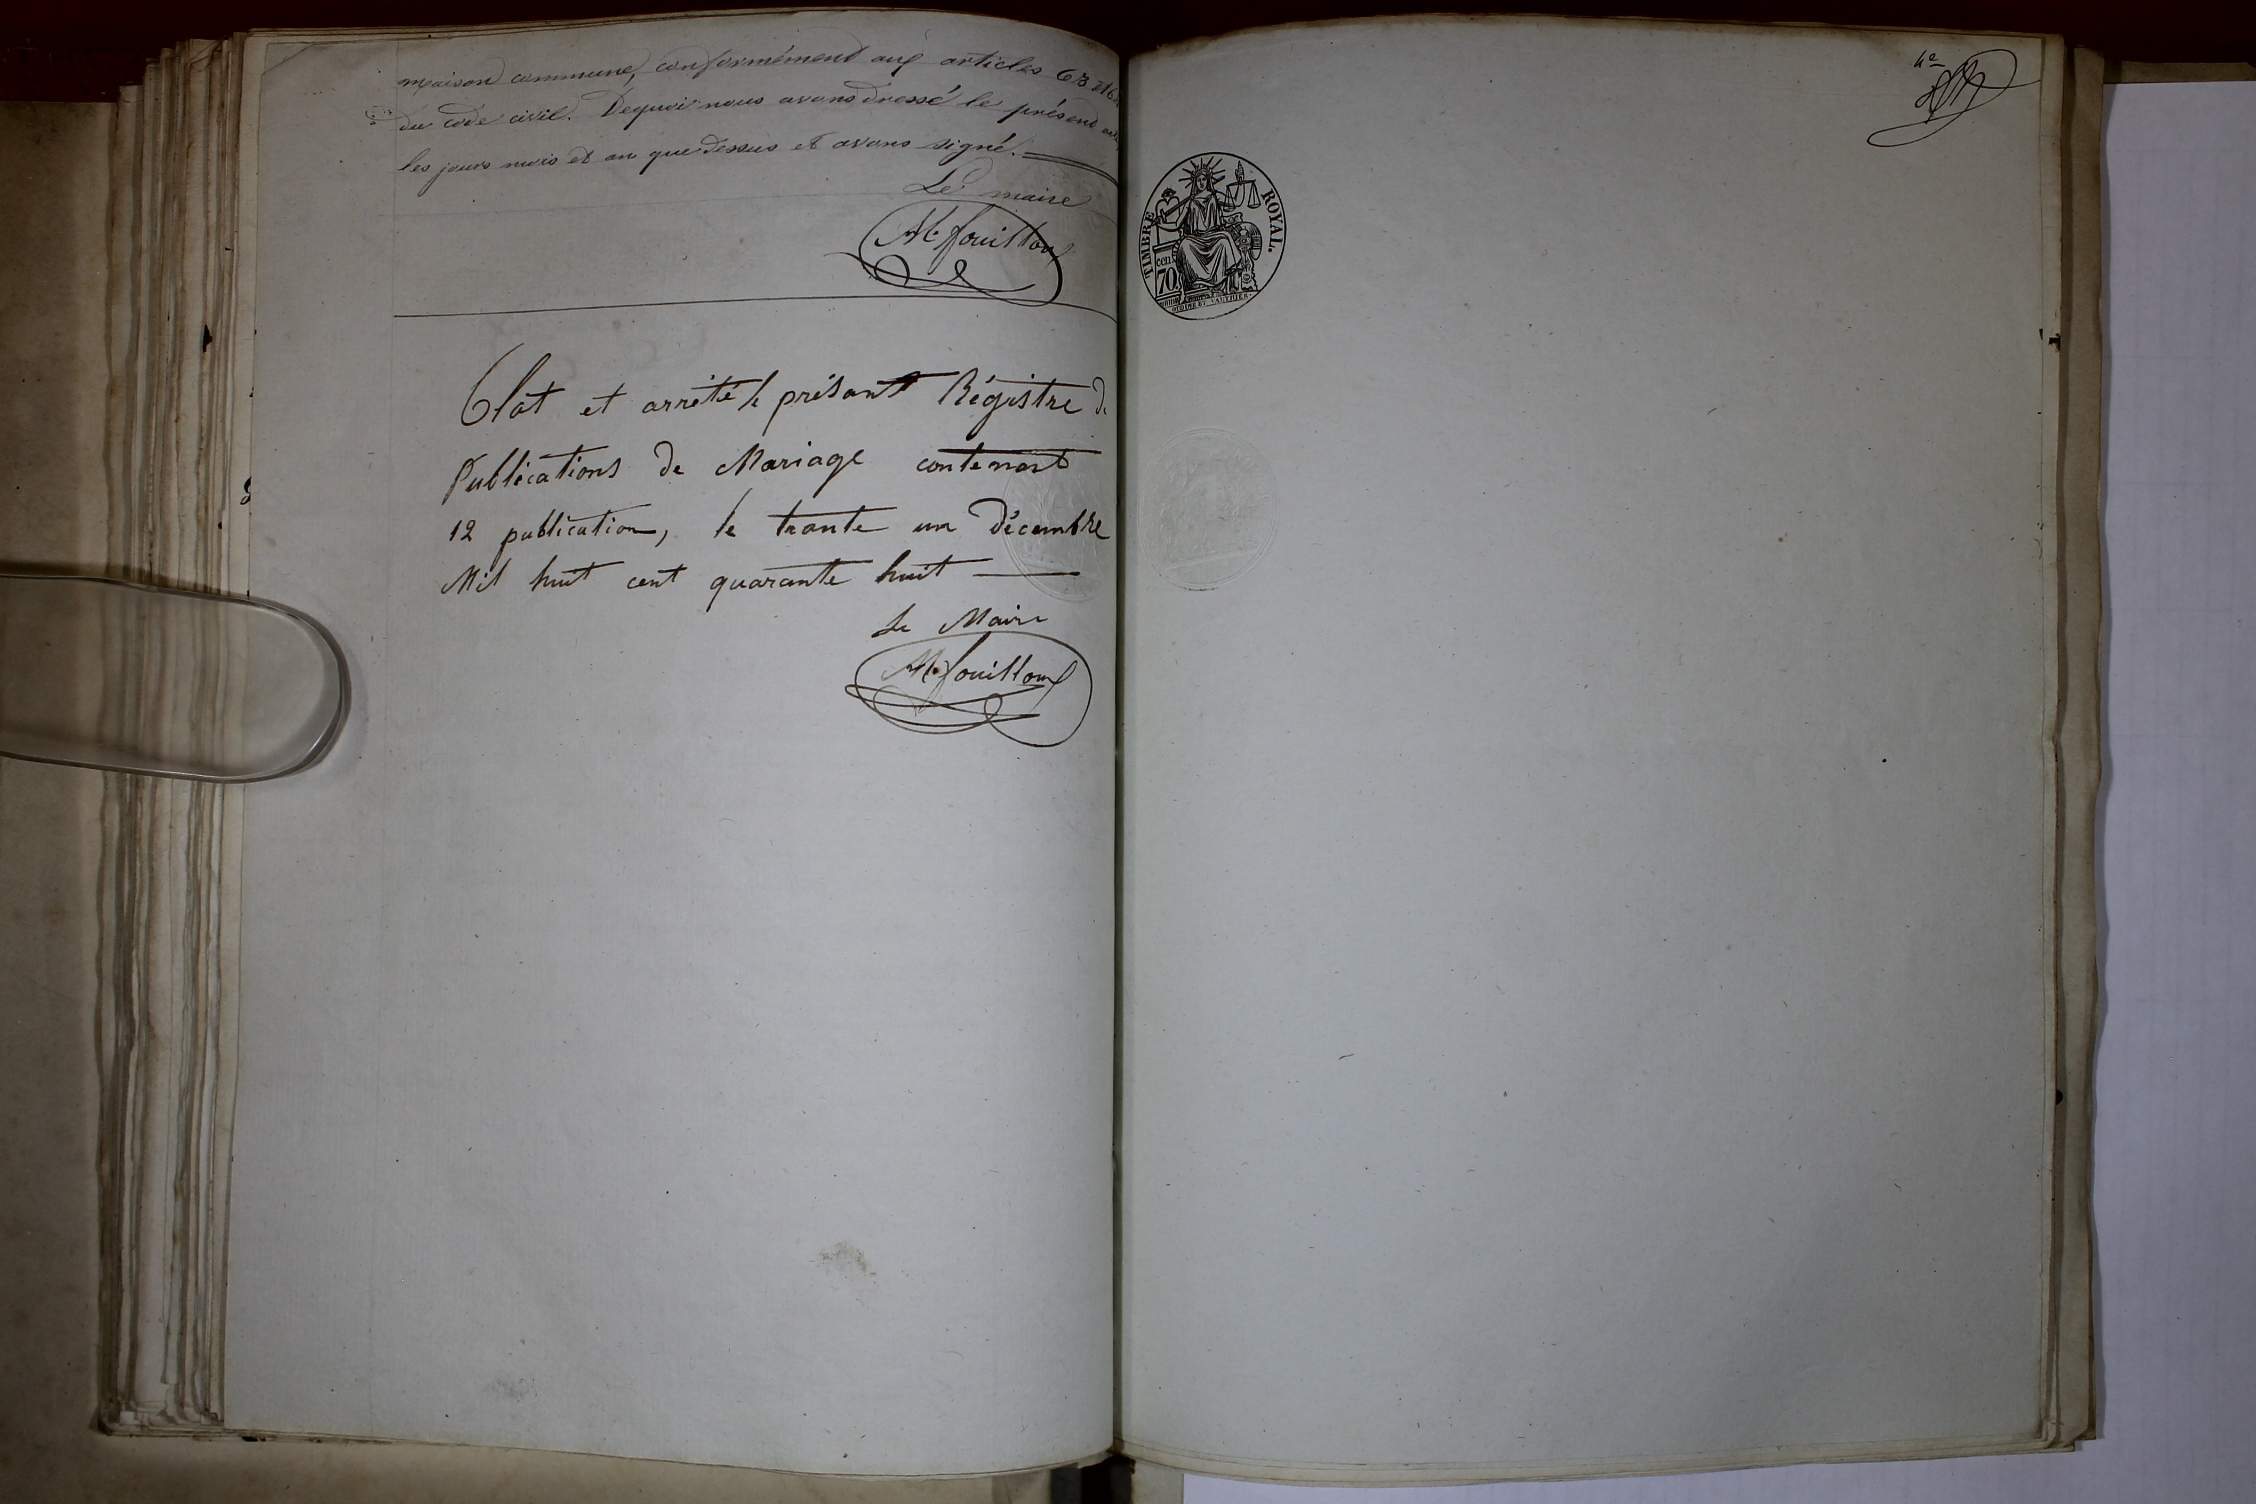 maison commune, conformément aux articles 63 et 64
du code civil. Dequoi nous avons dressé le présent acte
les jours mois et an que dessus et avons signé.
Le maire
M. fouilloux
Clot et arrêté le présant Régistre de
Publications de Mariage contenant
12 publication, le trante un décembre
Mil huit cent quarante huit
Le Maire
M. fouilloux
4e
TIMBRE ROYAL.
cen
70